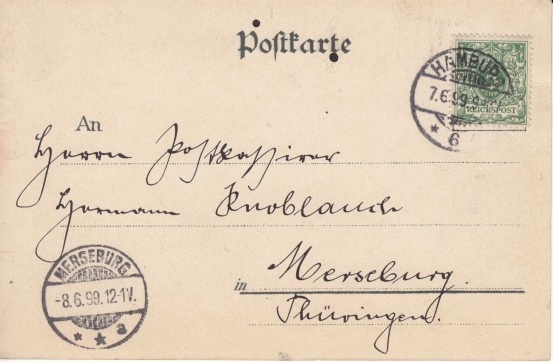 Postkarte
HAMBURG
7.6.99.8
REICHSPOST
* 6
An
Herrn Postkassirer
Hermann Knoblauch
MERSEBURG
-8.6.99.12-1V.
* * a
in Merseburg.
Thüringen.